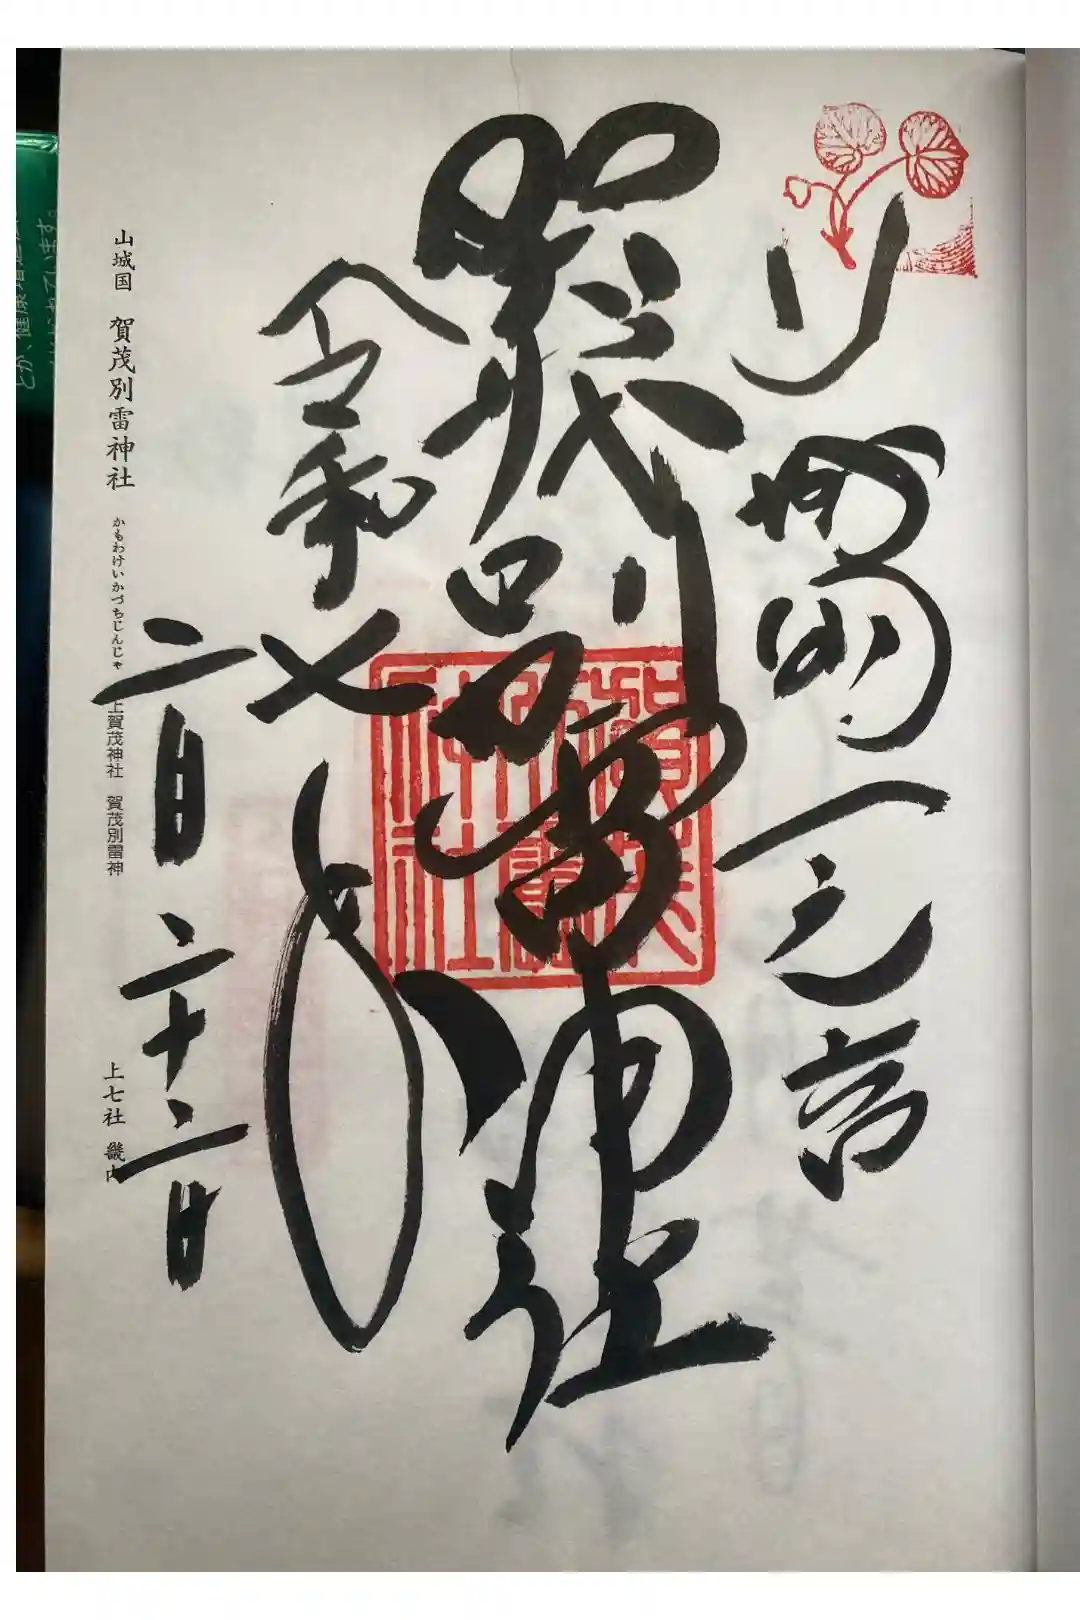 山州一之宮
賀茂別雷神社
令和七年
二月二十二日
山城国 賀茂別雷神社 かもわけいかづちじんじゃ 上賀茂神社 賀茂別雷神 上七社 畿内